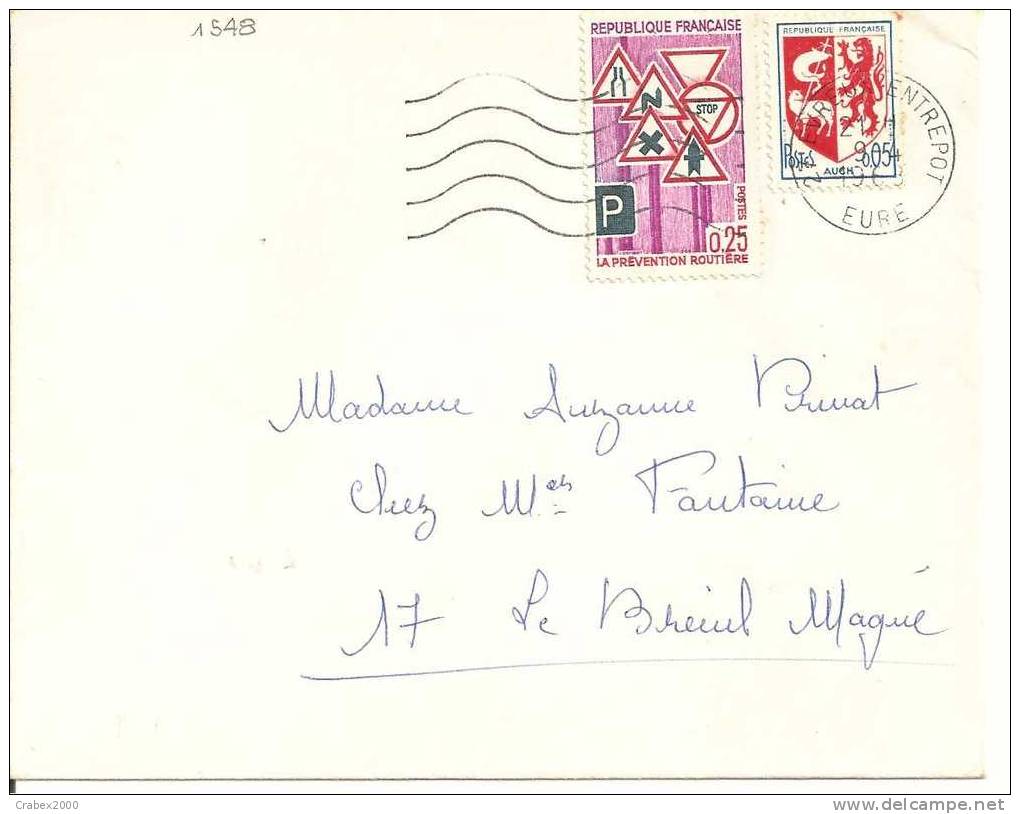 1548
REPUBLIQUE FRANÇAISE
STOP
P
POSTES
0.25
LA PRÉVENTION ROUTIÈRE
REPUBLIQUE FRANÇAISE
POSTES
0.05
AUCH
ENTREPOT
21 H
9
EURE
Madame Suzanne Primat
Chez M.es Fontaine
17 Le Breuil Magné
Crabex2000
www.delcampe.net